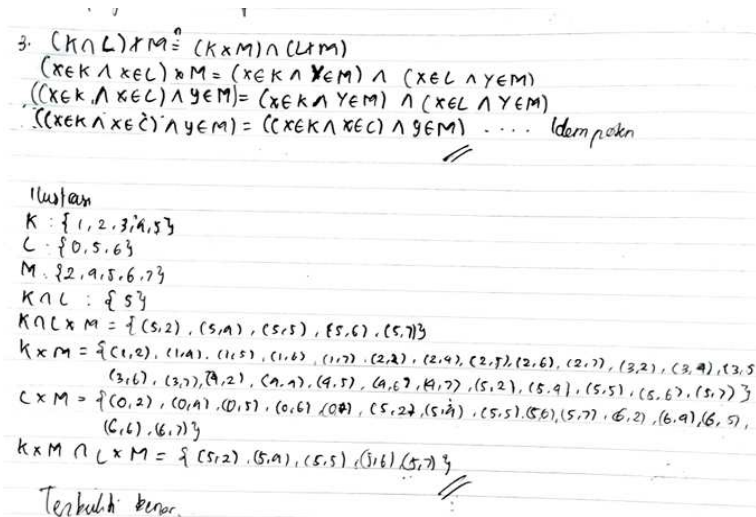 3. (K∩L)×M = (K×M)∩(L×M)
(x∈K ∧ x∈L) × M = (x∈K ∧ Y∈M) ∧ (x∈L ∧ Y∈M)
((x∈K ∧ x∈L) ∧ y∈M) = (x∈K ∧ Y∈M) ∧ (x∈L ∧ Y∈M)
((x∈K ∧ x∈L) ∧ y∈M) = ((x∈K ∧ x∈L) ∧ y∈M) .... Idempoten
Ilustrasi
K : {1,2,3,4,5}
L : {0,5,6}
M : {2,4,5,6,7}
K∩L : {5}
K∩L×M = {(5,2), (5,4), (5,5), (5,6), (5,7)}
K×M = {(1,2), (1,4), (1,5), (1,6), (1,7), (2,2), (2,4), (2,5), (2,6), (2,7), (3,2), (3,4), (3,5
(3,6), (3,7), (4,2), (4,4), (4,5), (4,6), (4,7), (5,2), (5,4), (5,5), (5,6), (5,7)}
L×M = {(0,2), (0,4), (0,5), (0,6), (0,7), (5,2), (5,4), (5,5), (5,6), (5,7), (6,2), (6,4), (6,5),
(6,6), (6,7)}
K×M ∩ L×M = {(5,2), (5,4), (5,5), (5,6), (5,7)}
Terbukti benar.